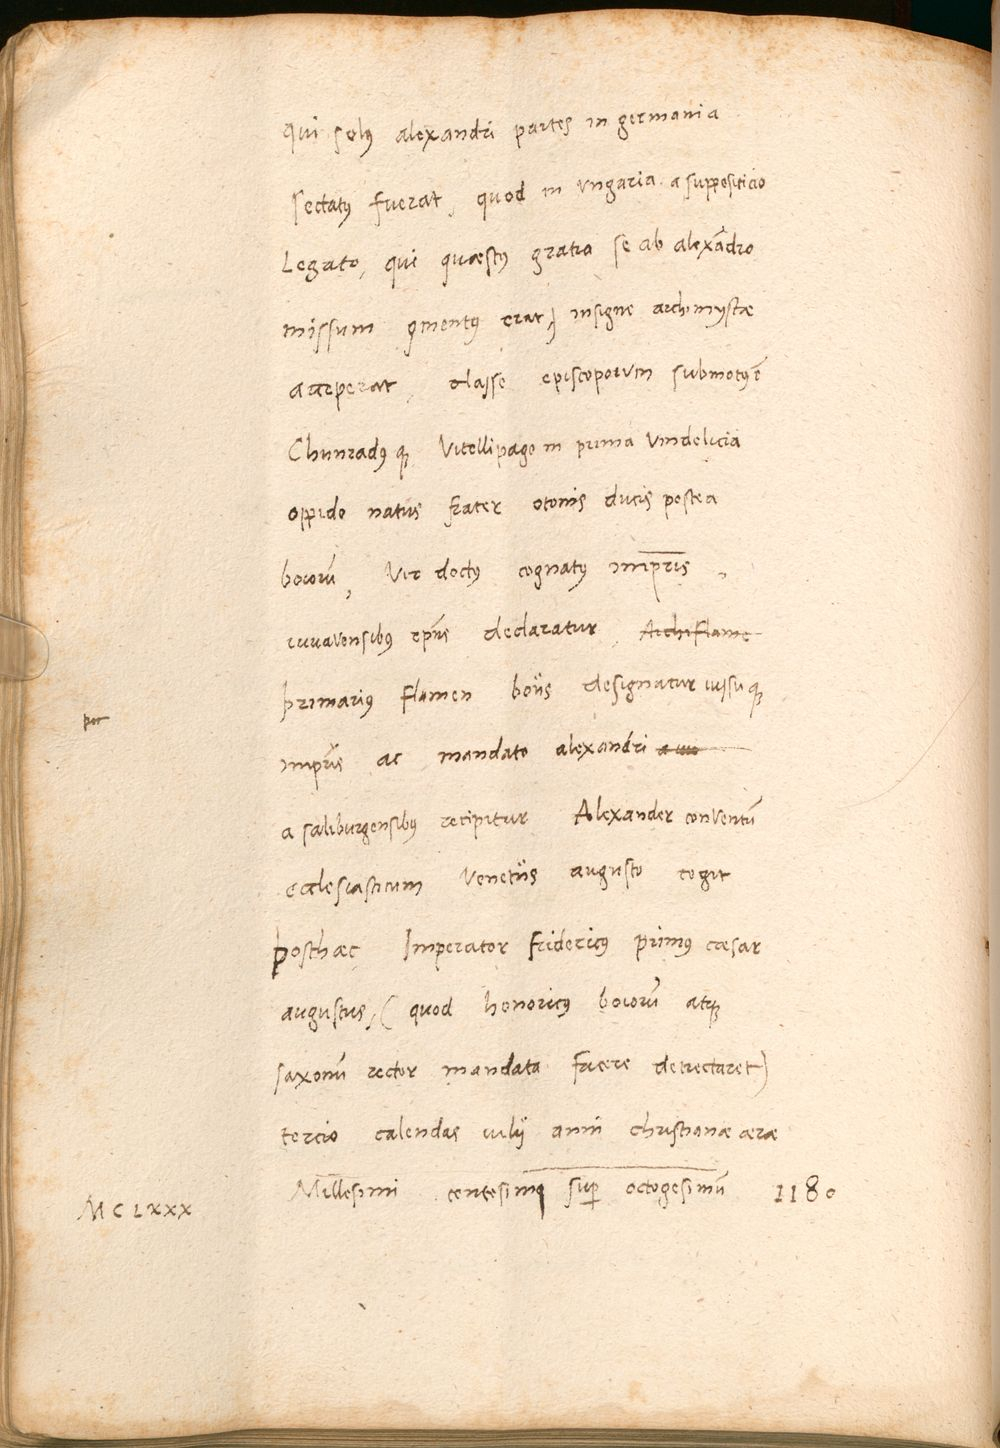 qui solꝰ alexandri partes in germania
sectatꝰ fuerat, quod in vngaria a supposititio
Legato, qui quæstꝰ gratia se ab alexādro
missum ꝯmentꝰ erat) insigne archimystæ
acceperat, classe episcoporum submotꝰ ē
Chunradꝰ qꝫ Vitellipago in prima Vindelicia
oppido natus frater otonis ducis postea
boiorū, Vir doctꝰ cognatꝰ imp̄r̄is,
iuuavensibꝰ ep̄us declaratur Archiflame
primarius flamen boiis designatur iussu qꝫ
per
imp̄ris ac mandato alexandri
a saliburgensibꝰ recipitur Alexander conventū
ecclesiasticum Venetiis augusto cogit
posthæc Imperator fridericꝰ primꝰ cæsar
augustus, (quod honoricꝰ boiorū atqꝫ
saxonū rector mandata facere detrectaret)
tercio calendas iulii anni christianæ æræ
Millesimi centesimq̄ suꝑ octogesimū 1180
MCLXXX